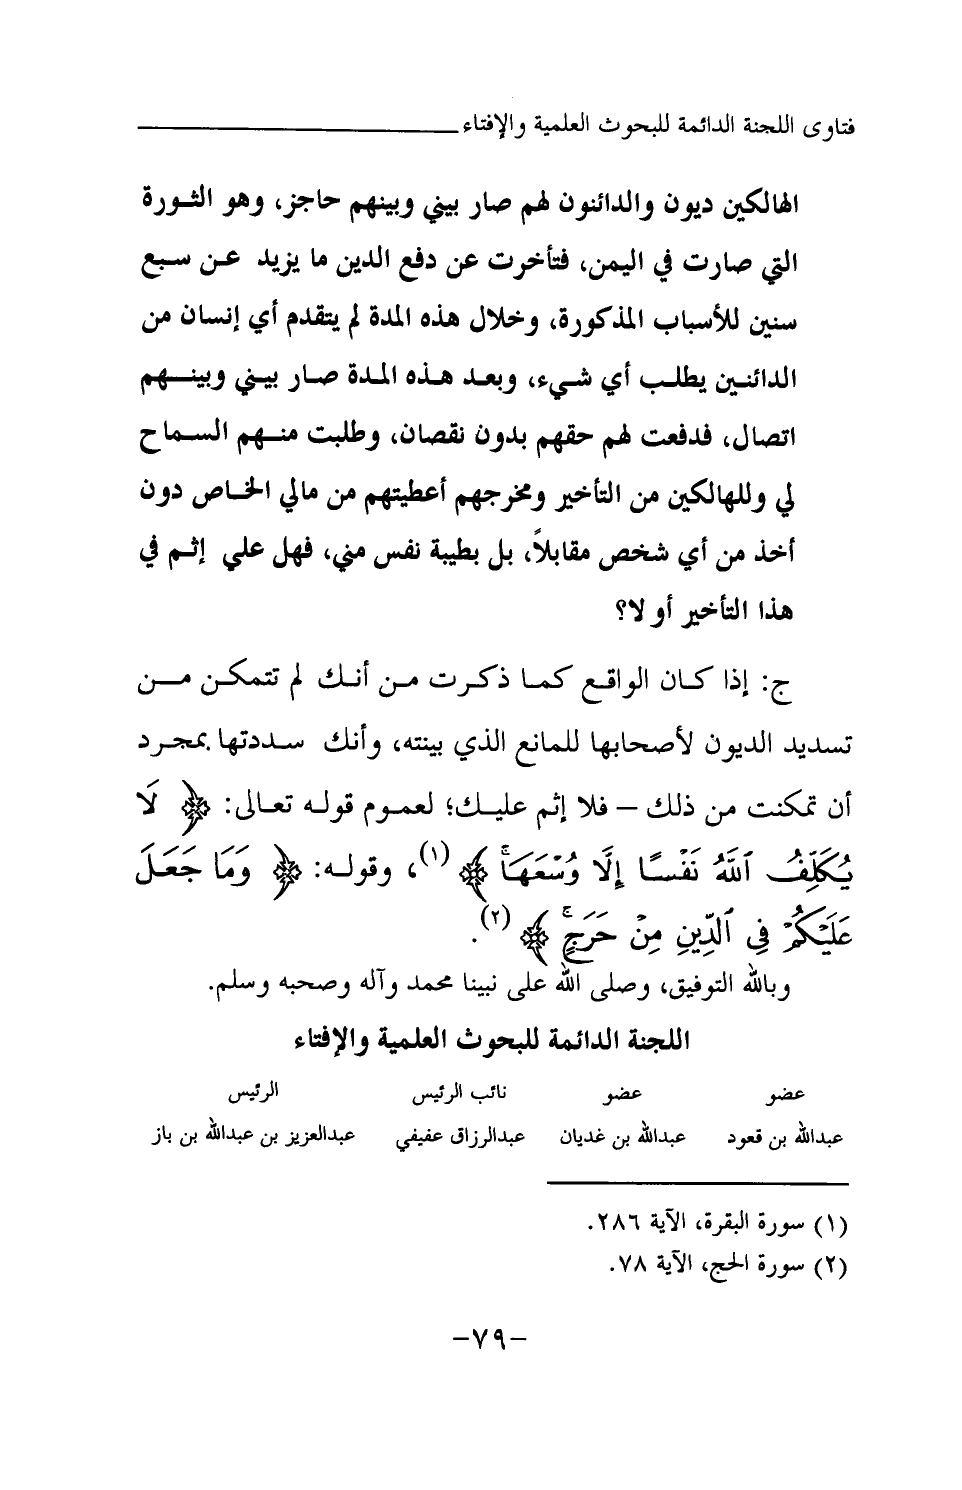 فتاوى اللجنة الدائمة للبحوث العلمية والإفتاء
الهالكين ديون والدائنون لهم صار بيني وبينهم حاجز، وهو الثورة
التي صارت في اليمن، فتأخرت عن دفع الدين ما يزيد عن سبع
سنين للأسباب المذكورة، وخلال هذه المدة لم يتقدم أي إنسان من
الدائنين يطلب أي شيء، وبعد هذه المدة صار بيني وبينهم
اتصال، فدفعت لهم حقهم بدون نقصان، وطلبت منهم السماح
لي وللهالكين من التأخير ومخرجهم أعطيتهم من مالي الخاص دون
أخذ من أي شخص مقابلاً، بل بطيبة نفس مني، فهل علي إثم في
هذا التأخير أو لا؟
ج: إذا كان الواقع كما ذكرت من أنك لم تتمكن من
تسديد الديون لأصحابها للمانع الذي بينته، وأنك سددتها بمجرد
أن تمكنت من ذلك – فلا إثم عليك؛ لعموم قوله تعالى: ﴿ لَا
يُكَلِّفُ ٱللَّهُ نَفْسًا إِلَّا وُسْعَهَا ۚ ﴾ (١)، وقوله: ﴿ وَمَا جَعَلَ
عَلَيْكُمْ فِي ٱلدِّينِ مِنْ حَرَجٍ ۚ ﴾ (٢).
وبالله التوفيق، وصلى الله على نبينا محمد وآله وصحبه وسلم.
اللجنة الدائمة للبحوث العلمية والإفتاء
عضو عضو نائب الرئيس الرئيس
عبدالله بن قعود عبدالله بن غديان عبدالرزاق عفيفي عبدالعزيز بن عبدالله بن باز
(١) سورة البقرة، الآية ٢٨٦.
(٢) سورة الحج، الآية ٧٨.
-٧٩-